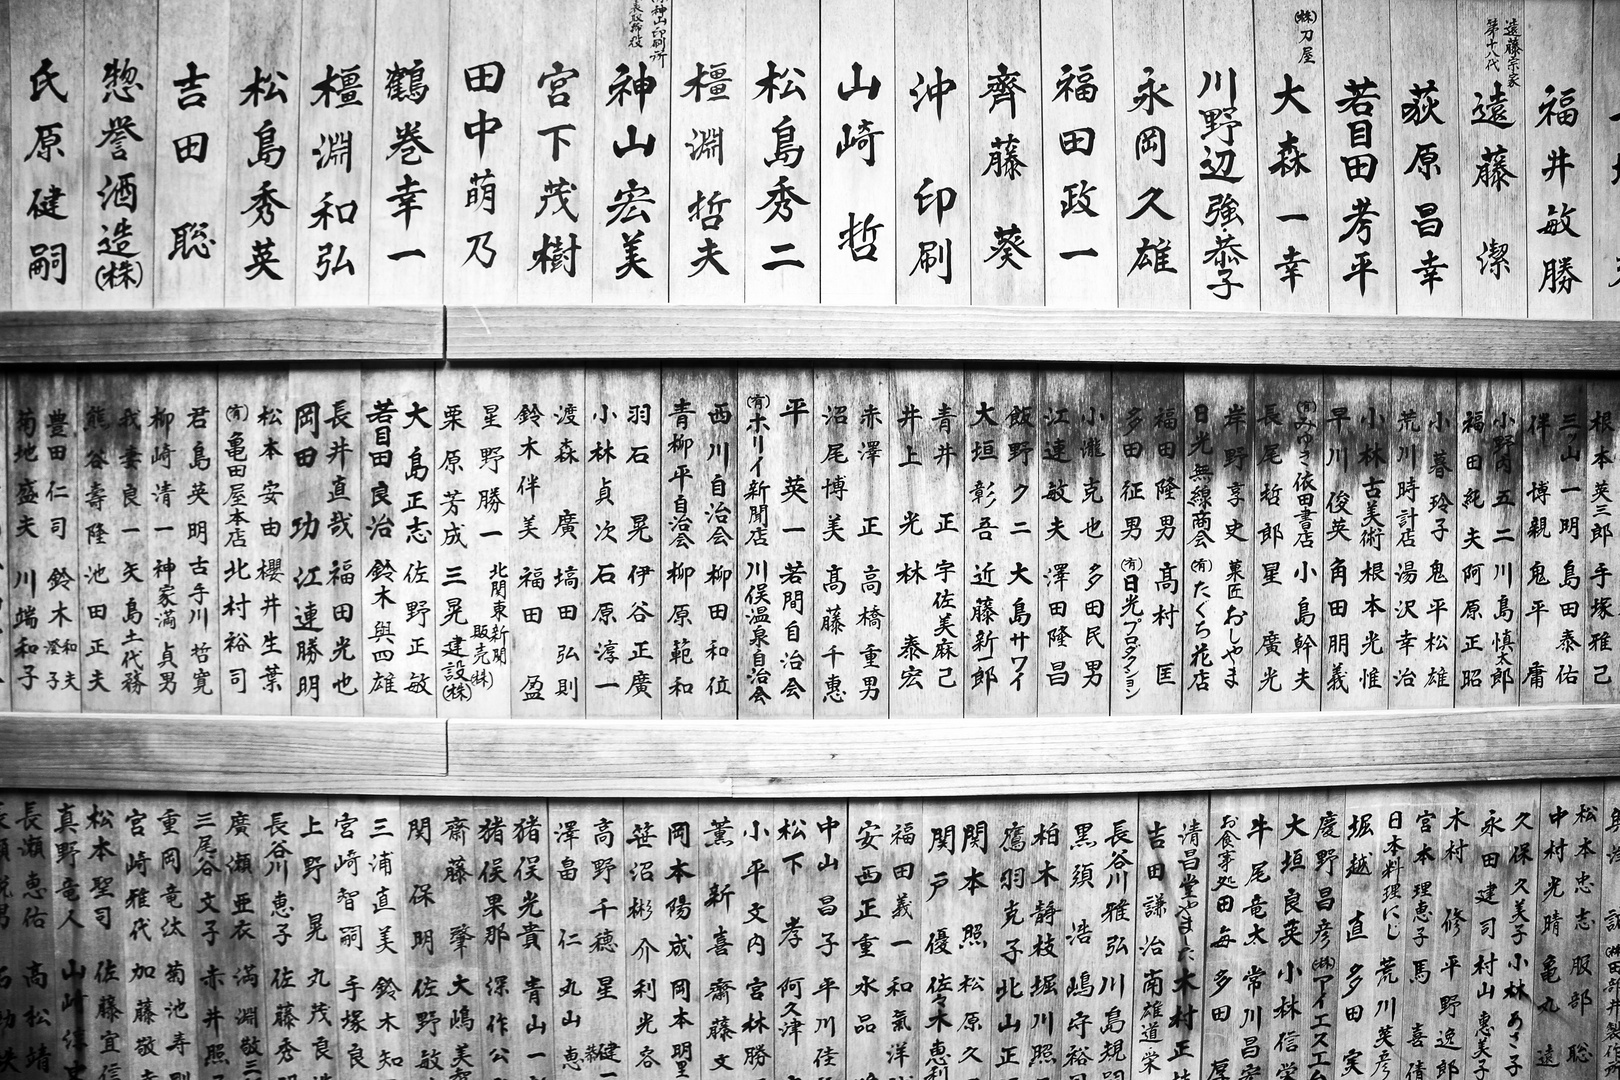 福井敏勝
遠藤宗家
第十八代
遠藤潔
荻原昌幸
若目田芳平
㈱刀屋
大森一幸
川野辺強・恭子
永岡久雄
福田政一
齊藤葵
沖印刷
山崎哲
松島秀二
橿淵哲夫
神山宏美
宮下茂樹
田中萌乃
鶴巻幸一
橿淵和弘
松島秀英
吉田聡
惣誉酒造(株)
氏原健嗣
根本英三郎 手塚雅己
三ッ山一明 島田泰佑
伴博親 鬼平庸
小野内五二 川島慎太郎
福田純夫 阿原正昭
小暮玲子 鬼平松雄
荒川時計店 湯沢幸治
小林古美術 根本光惟
早川俊英 角田朋義
(有)みゆき依田書店 小島幹夫
長尾哲郎 星廣光
岸野享史 菓匠おしやま
日光無線商会 (有)たぐち花店
福田隆男 高村匡
多田征男 (有)日光プロダクション
小瀧克也 多田民男
江連敏夫 澤田隆昌
飯野クニ 大島サワイ
大垣彰吾 近藤新一郎
青井正 宇佐美麻己
井上光 林泰宏
赤澤正 高橋重男
沼尾博美 高藤千恵
平英一 若間自治会
(有)ホリイ新聞店 川俣温泉自治会
西川自治会 柳田和位
青柳平自治会 柳原範和
羽石晃 伊谷正廣
小林貞次 石原淳一
渡森廣 塙田弘則
鈴木伴美 福田盈
星野勝一 北関東新聞販売(株)
栗原芳成 三晃建設(株)
大島正志 佐野正敏
若目田良治 鈴木與四雄
長井直哉 福田光也
岡田功 江連勝明
松本安由 櫻井生葉
(有)亀田屋本店 北村裕司
君島英明 古手川哲寛
柳崎清一 神家満貞男
我妻良一 矢島土代務
熊谷壽隆 池田正夫
豊田仁司 鈴木和夫 澄子
菊地盛夫 川端和子
松本忠志 服部聡
中村光晴 亀丸遠
久保久美子 小林あさ子
永田建司 村山恵美子
木村修平 野逸郎
宮本理恵子 馬喜倩
日本料理にじ 荒川芙彦
堀越直 多田実
慶野昌彦 (株)アイエスエム
大垣良英 小林信
牛尾竜太 常川昌宏
お食事処田毎 多田厚
清昌堂やました 木村正
吉田謙治 南雄道栄
長谷川雅弘 川島規
黒須浩 嶋守裕
柏木静枝 堀川照
鷹羽克子 北山正
関本照 松原久
関戸優 佐々木恵利
福田義一 和氣洋
安西正重 永品
中山昌子 平川佳
松下孝 阿久津
小平文内 宮林勝
薫新喜 齋藤文
岡本陽成 岡本明里
笹沼彬介 利光容
高野千穂 星健一
澤畠仁 丸山恵
猪俣光貴 青山一
猪俣果那 保作公
齋藤肇 大嶋美
関保明 佐野敏
三浦直美 鈴木知
宮崎智嗣 手塚良
上野晃 丸茂良
長谷川恵子 佐藤秀
廣瀬亜衣 満淵敬三
三尾谷文子 赤井照
重岡竜汰 菊池寿
宮崎雅代 加藤敬
松本聖司 佐藤宜信
真野竜人 山崎
長瀬恵佑 高松靖